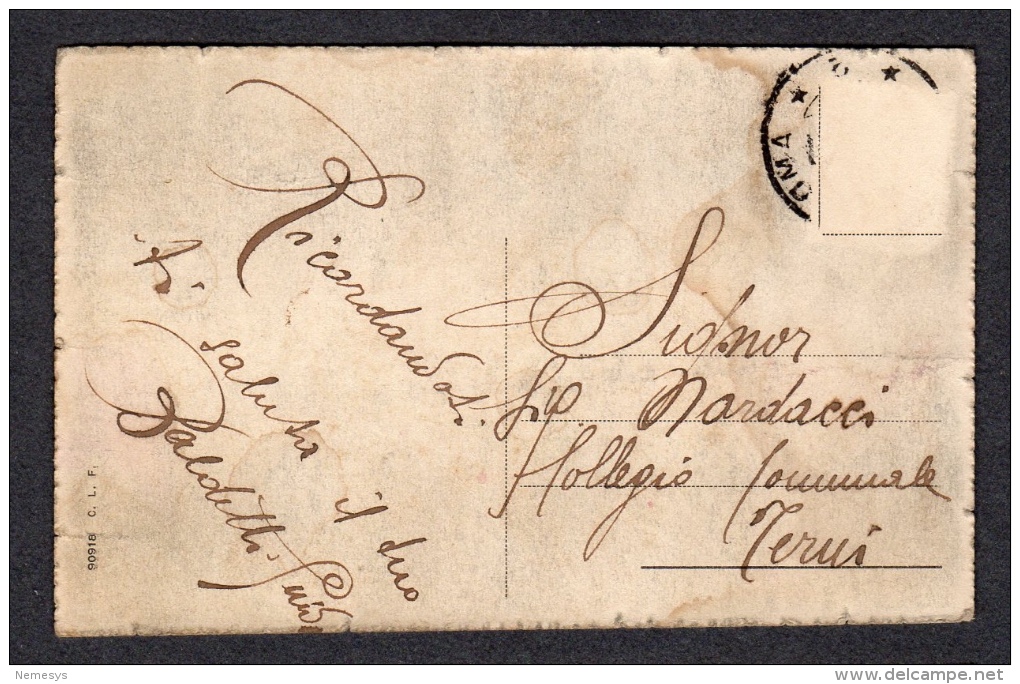 Ricordandoti
ti saluta
il tuo
Balditti
★ OMA ★
Signor
Nardacci
Collegio Comunale
Terni
90918 C. L. F.
Nemesys
delcampe.net